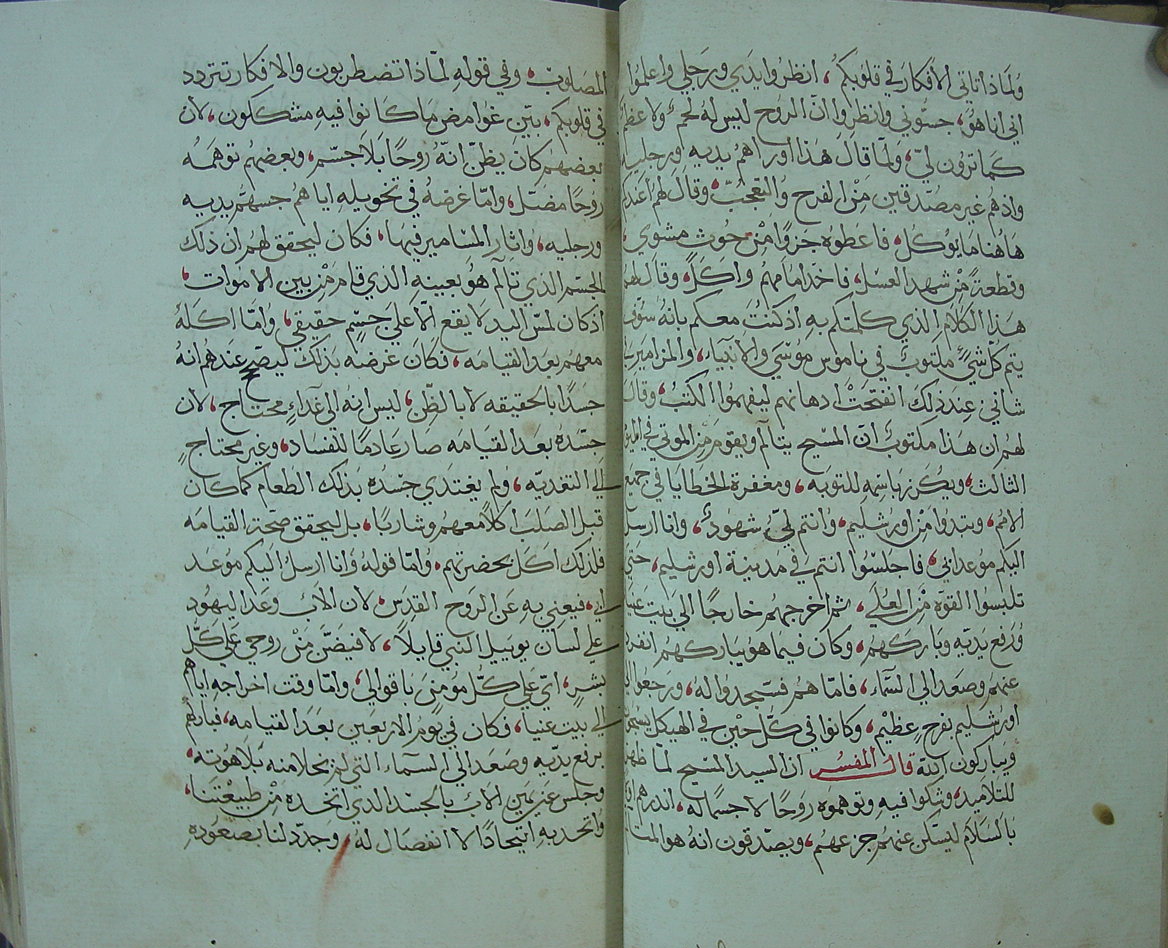 ولماذا تاتي الافكار في قلوبكم، انظروا يدي ورجلي واعلموا
اني انا هو، جسوني وانظروا ان الروح ليس له لحم ولا عظم
كما ترون لي، ولما قال هذا اوراهم يديه ورجليه
واذ هم غير مصدقين من الفرح والتعجب، وقال لهم اعندكم
هاهنا ما يوكل، فاعطوه جزوا من حوت مشوي،
وقطعة من شهد العسل، فاخذ امامهم واكل، وقال لهم
هذا الكلام الذي كلمتكم به اذ كنت معكم بانه سوف
يتم كل شيء مكتوب في ناموس موسى والانبياء، والمزامير
شاني، عند ذلك انفتحت ادهانهم ليفهموا الكتب، وقال
لهم ان هذا مكتوب ان المسيح يتالم ويقوم من الموتى في اليوم
الثالث، ويكرز باسمه للتوبه، ومغفرة الخطايا في جميع
الامم، وبتدوا من اورشليم، وانتم لي شهود، وانا ارسل
اليكم موعد ابي، فاجلسوا انتم في مدينة اورشليم، حتى
تلبسوا القوه من العلى، ثم اخرجهم خارجا الى بيت عنيا
ورفع يديه وباركهم، وكان فيما هو يباركهم انفرد
عنهم وصعد الى السماء، فاما هم فسجدوا له، ورجعوا الى
اورشليم بفرح عظيم، وكانوا في كل حين في الهيكل يسبحون
ويباركون الله قال المفسر ان السيد المسيح لما ظهر
للتلاميد، وشكوا فيه وتوهموه روحا لا جسما له،
بالسلام ليسكن عنهم جزعهم، ويصدقون انه هو المتالم
المصلوب، وفي قوله لماذا تضطربون والافكار تتردد
في قلوبكم، بين غوامض ما كانوا فيه مشكلون، لان
بعضهم كان يظن انه روحا بلا جسم، وبعضهم توهمه
روحا مضل، واما غرضه في تخويله اياهم جسهم يديه
ورجليه، واثار المسامير فيها، فكان ليحقق لهم ان ذلك
الجسم الذي تالم هو بعينه الذي قام من بين الاموات،
اذ كان لمس اليد لا يقع الا على جسم حقيقي، واما اكله
معهم بعد القيامه، فكان غرضه بذلك ليصح عندهم انه
جسدا بالحقيقه لا بالظن، ليس انه الى غداء محتاج، لان
جسده بعد القيامه صار عادما للفساد، وغير محتاج
الى التغديه، ولم يغتدي جسده بذلك الطعام كما كان
قبل الصلب اكلا معهم وشاربا، بل ليحقق صحة القيامه
فلذلك اكل بحضرتهم، واما قوله وانا ارسل اليكم موعد
ابي، فيعني به عن الروح القدس، لان الاب وعد اليهود
على لسان يوييل النبي قايلا، لافيضن من روحي على كل
بشر، اي على كل مومن باقوالي، واما وقت اخراجه اياهم
الى بيت عنيا، فكان في يوم الاربعين بعد القيامه، فباركهم
برفع يديه وصعد الى السماء التي لم تخلا منه بلاهوته،
وجلس عن يمين الاب بالجسد الذي اتخده من طبيعتنا،
واتحد به اتحادا لا انفصال له، وجدد لنا بصعوده